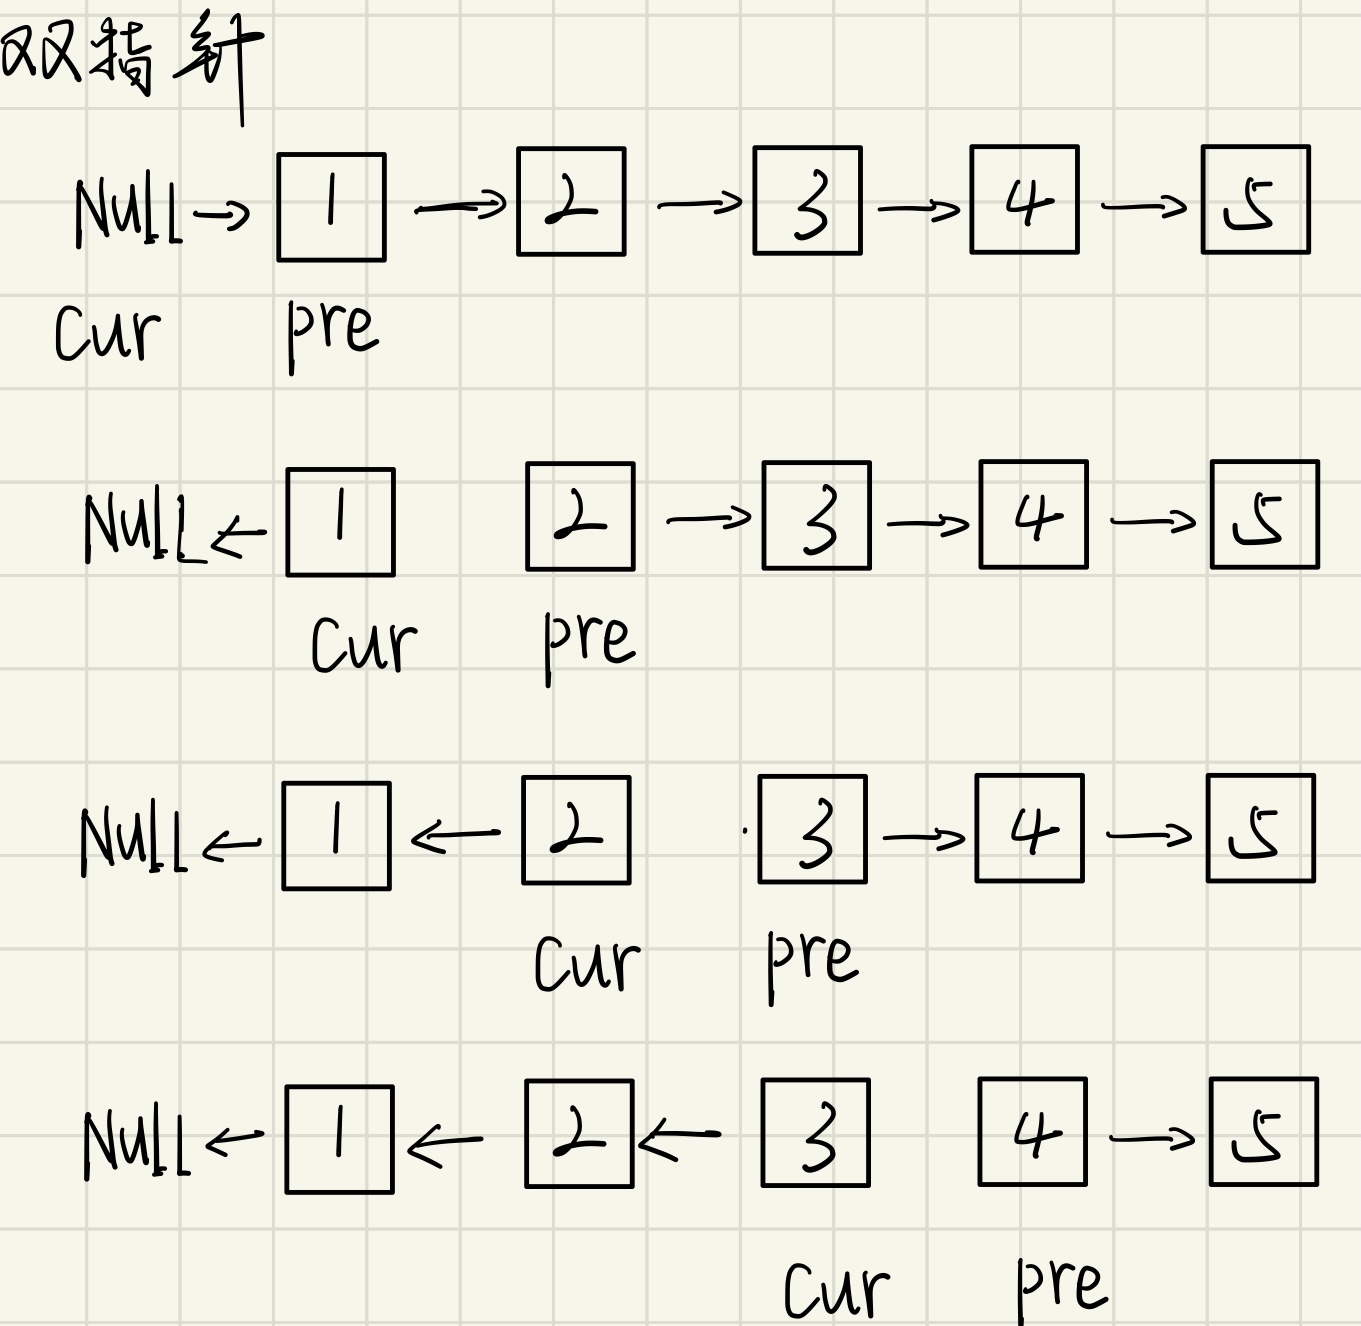 双指针
NULL → 1 → 2 → 3 → 4 → 5
cur pre
NULL ← 1 2 → 3 → 4 → 5
cur pre
NULL ← 1 ← 2 3 → 4 → 5
cur pre
NULL ← 1 ← 2 ← 3 4 → 5
cur pre